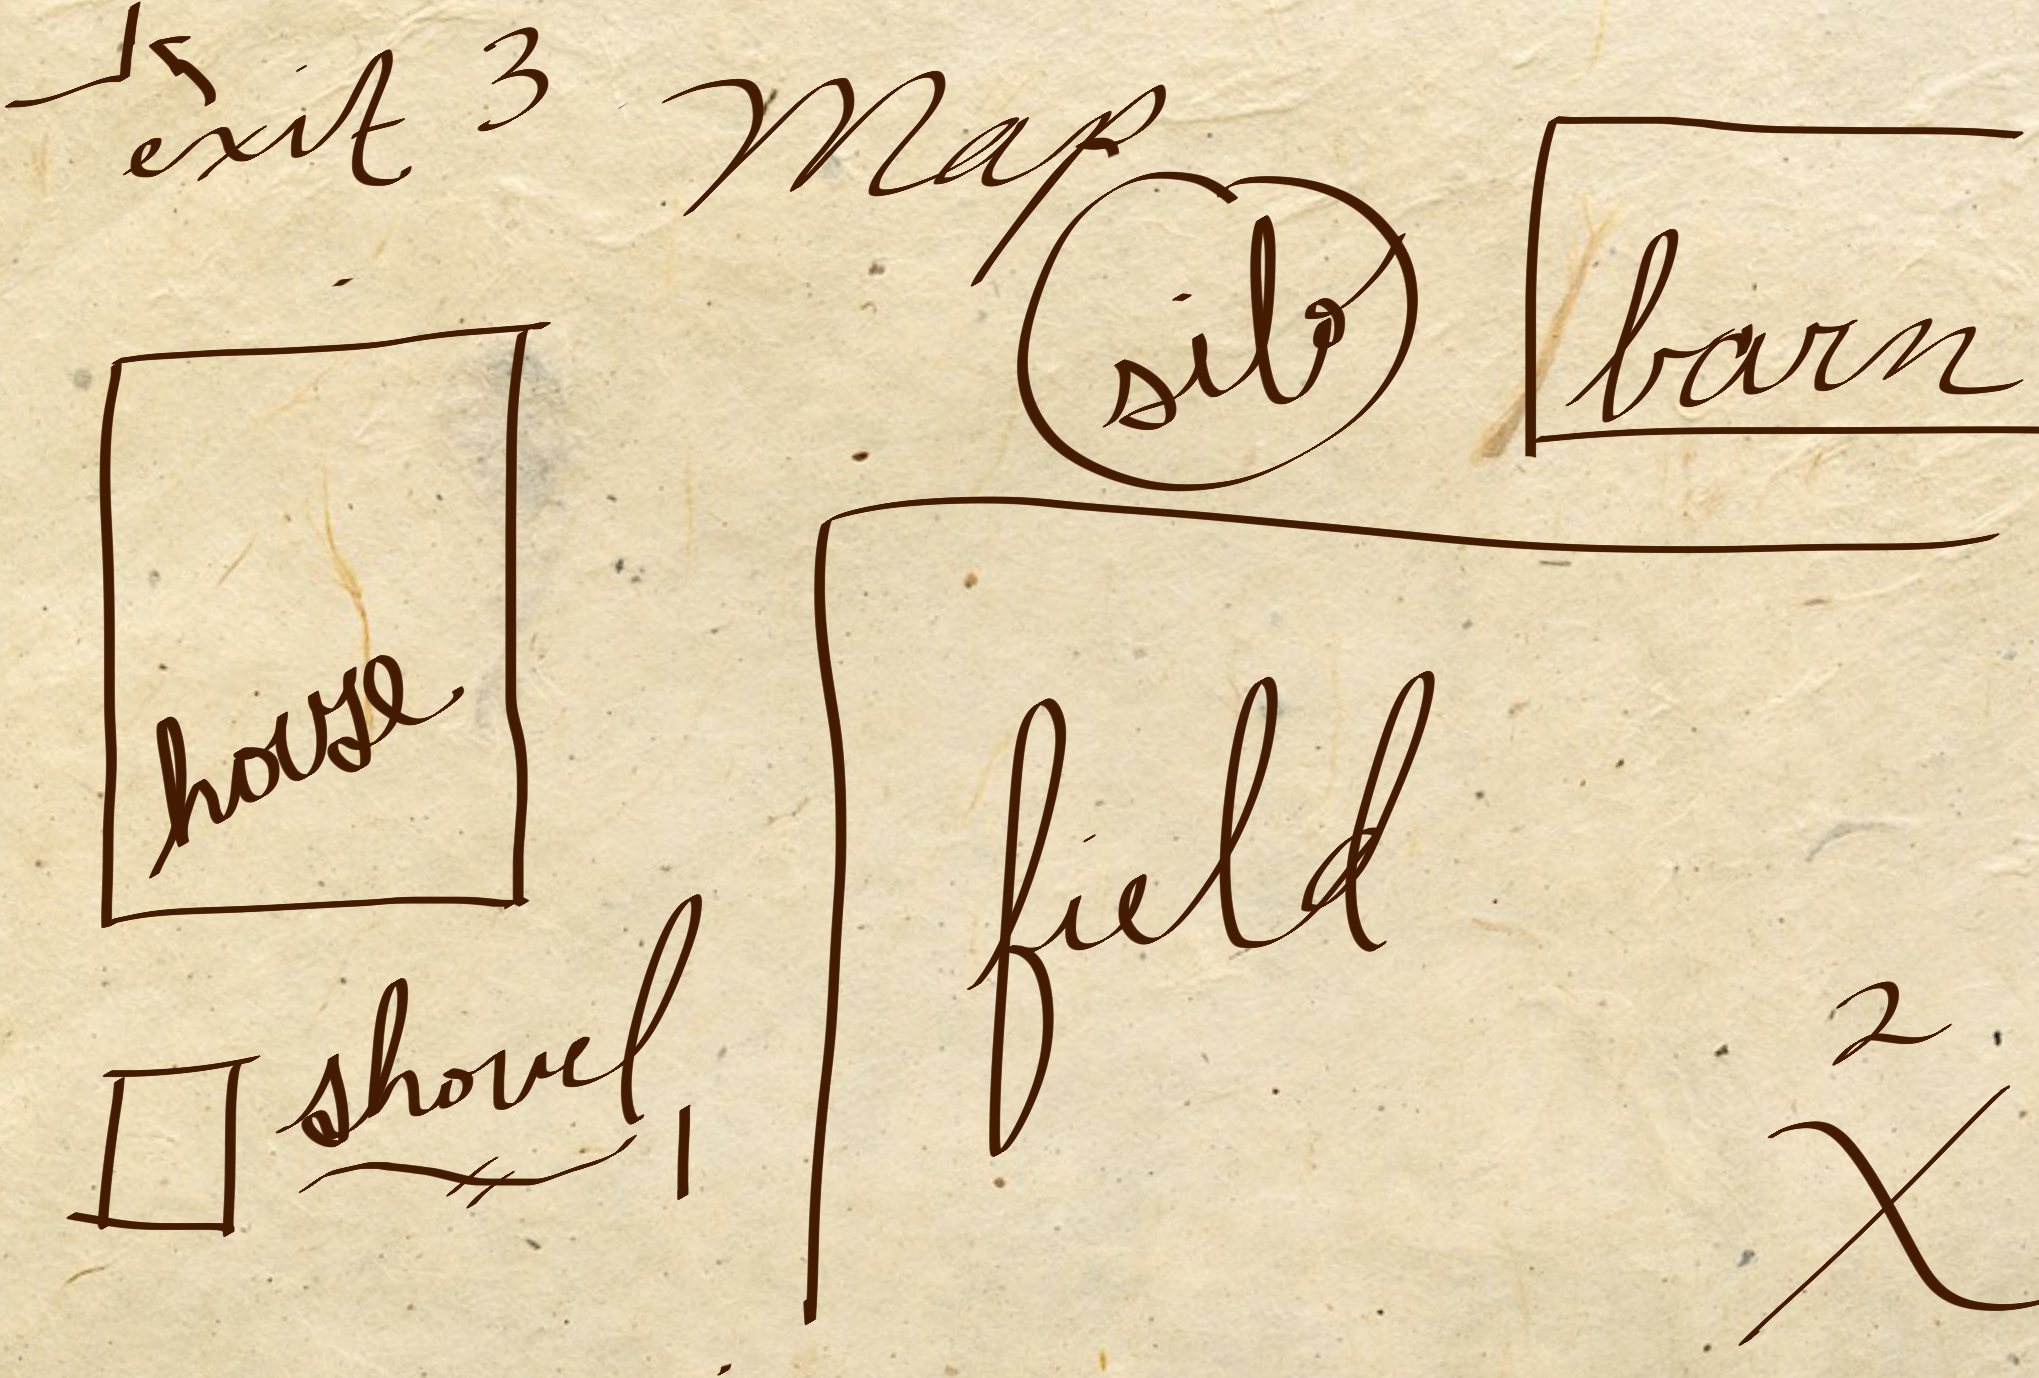 exit 3 Map
silo
barn
house
field
shovel
1
2
X